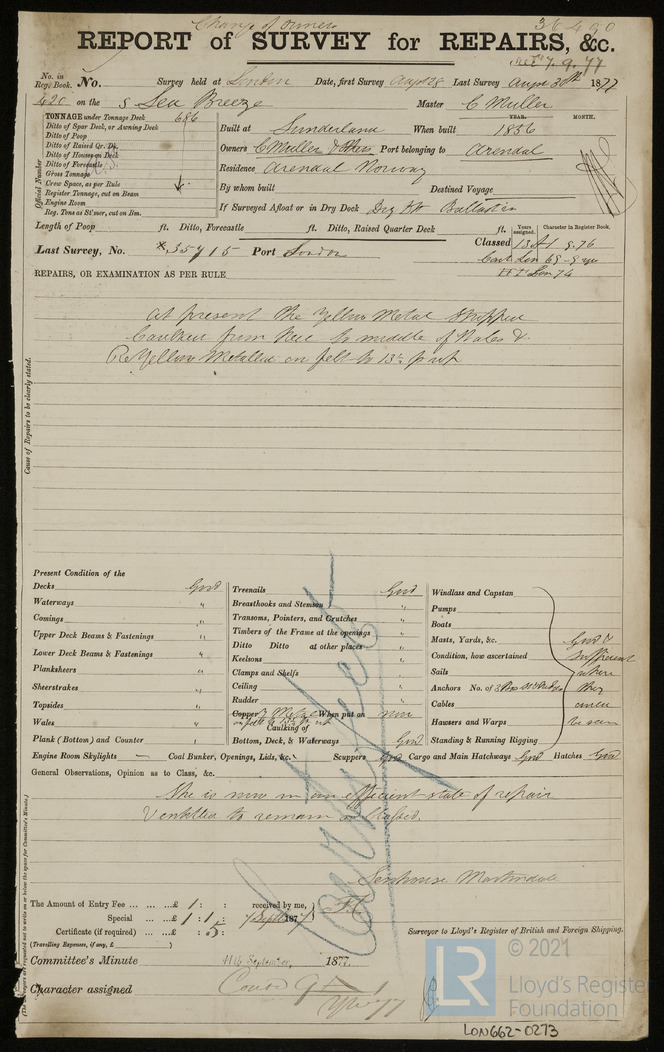 Change of Owners
36490
REPORT of SURVEY for REPAIRS, &c.
7.9.77
No. in Reg. Book. No. Survey held at London Date, first Survey Augt 28 Last Survey Augt 30th 1877
420 on the S Sea Breeze Master C Muller
TONNAGE under Tonnage Deck 686
Ditto of Spar Deck, or Awning Deck
Ditto of Poop
Ditto of Raised Qr. Dk.
Ditto of Houses on Deck
Ditto of Forecastle
Gross Tonnage
Crew Space, as per Rule
Register Tonnage, cut on Beam
Engine Room
Reg. Tons as St'mer, cut on Bm.
Official Number
YEAR. MONTH.
Built at Sunderland When built 1856
Owners C Muller & Others Port belonging to Arendal
Residence Arendal Norway
By whom built Destined Voyage
If Surveyed Afloat or in Dry Dock Dry
Length of Poop ft. Ditto, Forecastle ft. Ditto, Raised Quarter Deck ft.
Years assigned. Character in Register Book.
Last Survey, No. 35715 Port London Classed 13 A1 9.76
Cont Lon 69-9
Lon 74
REPAIRS, OR EXAMINATION AS PER RULE
At present the Yellow Metal Stripped
Caulked from Keel to middle of Wales &
ReYellow Metalled on felt to 13 ft
Cause of Repairs to be clearly stated.
Present Condition of the
Decks Good
Waterways "
Comings "
Upper Deck Beams & Fastenings "
Lower Deck Beams & Fastenings "
Planksheers "
Sheerstrakes "
Topsides "
Wales "
Plank (Bottom) and Counter "
Treenails Good
Breasthooks and Stemson "
Transoms, Pointers, and Crutches "
Timbers of the Frame at the openings "
Ditto Ditto at other places "
Keelsons "
Clamps and Shelfs "
Ceiling "
Rudder "
Copper Y Metal When put on now
Caulking of
Bottom, Deck, & Waterways Good
Windlass and Capstan
Pumps
Boats
Masts, Yards, &c.
Condition, how ascertained
Sails
Anchors No. of
Cables
Hawsers and Warps
Standing & Running Rigging
Good &
sufficient
where
they
could
be seen
Engine Room Skylights — Coal Bunker, Openings, Lids, &c. Scuppers Good Cargo and Main Hatchways Good Hatches Good
General Observations, Opinion as to Class, &c.
She is now in an efficient state of repair
& entitled to remain as classed.
Certificate
Senhouse Martindale
The Amount of Entry Fee £ 1 : : received by me,
Special £ 1 : 1 : 7 Sept 1877
Certificate (if required) : 5 :
(Travelling Expenses, if any, £ )
Surveyor to Lloyd's Register of British and Foreign Shipping.
Committee's Minute 11th September, 1877.
Character assigned
77
© 2021
LR
Lloyd's Register
Foundation
LON662-0273